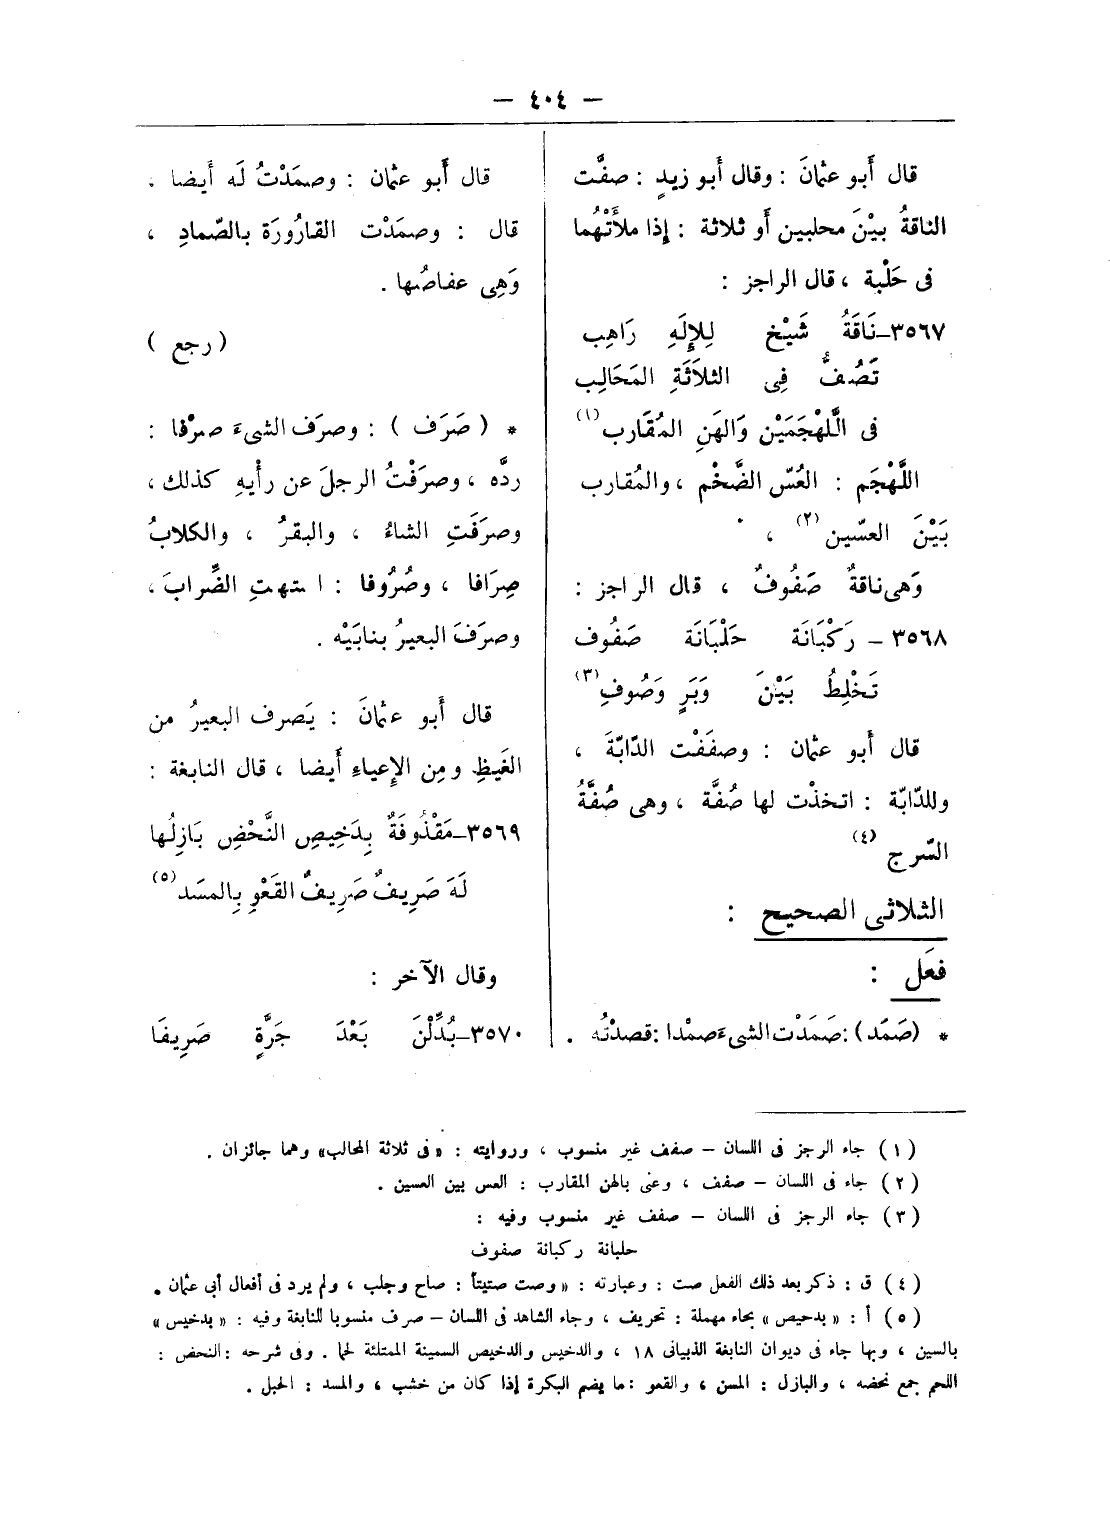 — ٤٠٤ —
قال أَبو عثمانَ : وقال أَبو زيدٍ : صفَّت
الناقةُ بيْنَ محلبين أَو ثلاثة : إذا ملأَتْهُما
فى حَلْبة ، قال الراجز :
٣٥٦٧ــ نَاقَةُ شَيْخ لِلإِلَهِ رَاهِب
تَصُفُّ فِى الثلاَثَةِ المَحَالِب
فى اللَّهْجَمَيْن وَالهَنِ المُقَارب (١)
اللَّهْجَم : العُسّ الضَّخْم ، والمُقارب
بَيْنَ العسّين (٢) ،
وَهى ناقةٌ صَفُوفٌ ، قال الراجز :
٣٥٦٨ ــ رَكْبَانَة حَلْبَانَة صَفُوف
تَخْلِطُ بَيْنَ وَبَرٍ وَصُوفِ (٣)
قال أَبو عثمان : وصفَفْت الدّابّةَ ،
وللدّابّة : اتخذْت لها صُفَّة ، وهى صُفَّةُ
السّرج (٤)
الثلاثى الصحيح :
فعَل :
* (صَمَد) : صَمَدْت الشىءَ صمْدا : قصدْتُه .
قال أَبو عثمان : وصمَدْتُ لَه أَيضا .
قال : وصمَدْت القارُورَة بالصّمادِ ،
وَهِى عفاصُها .
( رجع )
* ( صَرَف ) : وصرَف الشىءَ صرْفا :
ردَّه ، وصرَفْتُ الرجلَ عن رأْيهِ كذلك ،
وصرَفَتِ الشاءُ ، والبقرُ ، والكلابُ
صِرَافا ، وصُرُوفا : اشتهتِ الضِّرابَ ،
وصرَفَ البعيرُ بنابَيْه .
قال أَبو عثمانَ : يَصرف البعيرُ من
الغَيظِ ومِن الإِعياءِ أَيضا ، قال النابغة :
٣٥٦٩ــ مَقْذُوفَةٌ بِدَخِيصِ النَّحْضِ بَازِلُها
لَهَ صَرِيفٌ صَرِيفُ القَعْوِ بِالمسَد (٥)
وقال الآخر :
٣٥٧٠ــ بُدِّلْنَ بَعْدَ جَرَّةٍ صَرِيفَا
(١) جاء الرجز فى اللسان – صفف غير منسوب ، وروايته : «فى ثلاثة المحالب» وهما جائزان .
(٢) جاء فى اللسان – صفف ، وعنى بالهن المقارب : العس بين العسين .
(٣) جاء الرجز فى اللسان – صفف غير منسوب وفيه :
حلبانة ركبانة صفوف
(٤) ق : ذكر بعد ذلك الفعل صت : وعبارته : «وصت صتيتاً : صاح وجلب ، ولم يرد فى أفعال أبى عثمان .
(٥) أ : «بدحيص» بحاء مهملة : تحريف ، وجاء الشاهد فى اللسان – صرف منسوبا للنابغة وفيه : «بدخيس»
بالسين ، وبها جاء فى ديوان النابغة الذبيانى ١٨ ، والدخيس والدخيص السمينة الممتلئة لحما . وفى شرحه : النحض :
اللحم جمع نحضه ، والبازل : المسن ، والقعو : ما يضم البكرة إذا كان من خشب ، والمسد : الحبل .